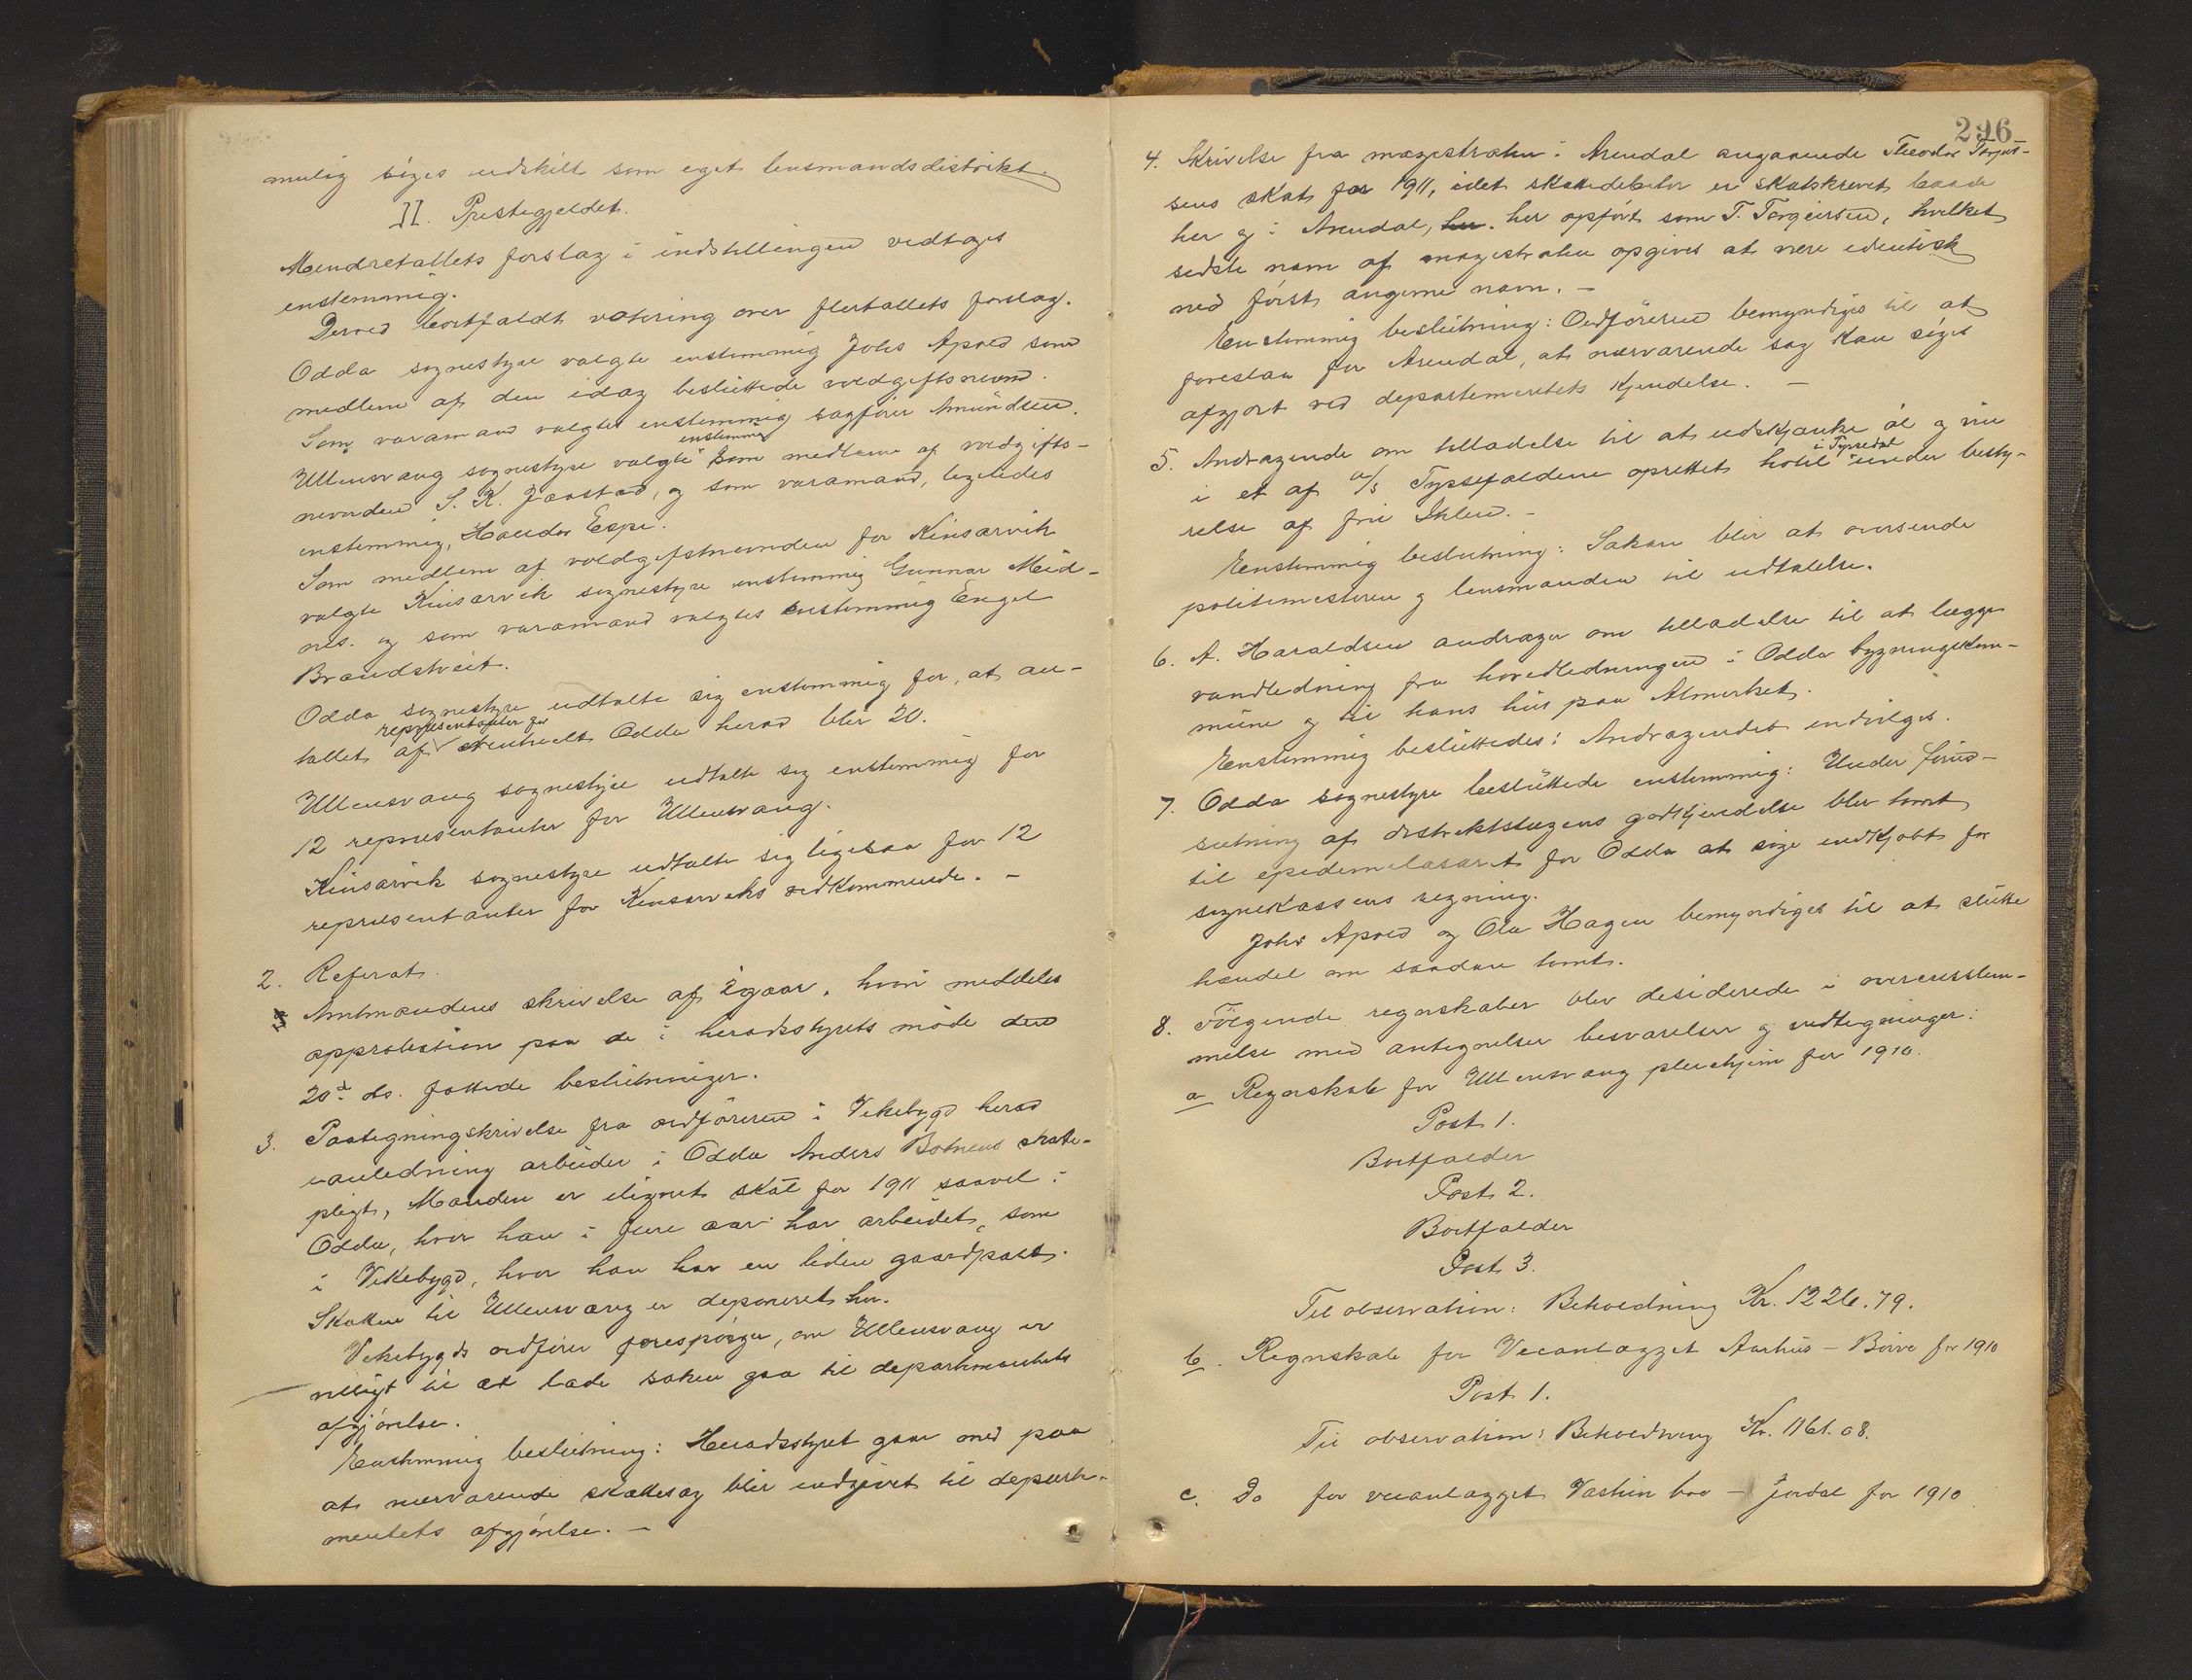 mulig söges udskilt som eget lensmandsdistrikt.
II. Prestegjeldet.
Mindretallets forslag i indstillingen vedtages
enstemmig.
Derved bortfaldt votering over flertallets forslag.
Odda sognestyre valgte enstemmig Johs Apold som
medlem af den idag besluttede voldgiftsnevnd.
Som varamand valgtes enstemmig sagförer Amundsen.
enstemmig
Ullensvang sognestyre valgte som medlem af voldgifts-
nevnden S. K. Jaastad, og som varamand, ligeledes
enstemmig, Haldor Espe.
Som medlem af voldgiftsnevnden for Kinsarvik
valgte Kinsarvik sognestyre enstemmig Gunnar Meid-
nes. og som varamand valgtes enstemmig Engel
Brandstveit.
Odda sognestyre udtalte sig enstemmig for, at an-
representanter for
tallet af eventuelt Odda herad blir 20.
Ullensvang sognestyre udtalte sig enstemmig for
12 representanter for Ullensvang.
Kinsarvik sognestyre udtalte sig ligesaa for 12
representanter for Kinsarviks vedkommende. –
2. Referat.
Amtmandens skrivelse af igaar, hvori meddeles
approbation paa de i heradsstyrets möde den
20d ds. fattede beslutninger.
3. Paategningskrivelse fra ordföreren i Vikebygd herad
i anledning arbeider i Odda Anders Botnens skatte-
pligt, Manden er ilignet skat for 1911 saavel i
Odda, hvor han i flere aar har arbeidet, som
i Vikebygd, hvor han har en liden gaardpart.
Skatten til Ullensvang er deponeret her.
Vikebygds ordförer forespörger, om Ullensvang er
villigt til at lade saken gaa til departementets
afgjörelse.
Enstemmig beslutning: Heradsstyret gaar med paa
at nærværende skattesag blir indgivet til departe-
mentets afgjörelse. –
296
4. Skrivelse fra magistraten i Arendal angaaende Theodor Torjus-
sens skat for 1911, idet skattedebitor er skatskrevet baade
her og i Arendal, her opfört som T. Torgeirsen, hvilket
sidste navn af magistraten opgives at være identisk
med först angivne navn. –
Enstemmig beslutning: Ordföreren bemyndiges til at
foreslaa for Arendal, at nærværende sag kan söges
afgjort ved departementets kjendelse. –
5. Andragende om tilladelse til at udskjænke öl og vin
i Tyssedal
i et af a/s Tyssefaldene oprettet hotel under besty-
relse af fru Ihlen. –
Enstemmig beslutning: Saken blir at oversende
politimesteren og lensmanden til udtalelse.
6. A. Haraldsen andrager om tilladelse til at lægge
vandledning fra hovedledningen i Odda bygningskom-
mune og til hans hus paa Almerket.
Enstemmig besluttedes: Andragendet indvilges.
7. Odda sognestyre besluttede enstemmig: Under forud-
sætning af distriktslægens godkjendelse blir tomt
til epidemilasaret for Odda at söge indkjöbt for
sognekassens regning.
Johs Apold og Ola Hagen bemyndiges til at slutte
handel om saadan tomt.
8. Fölgende regnskaber blev desiderede i overensstem-
melse med antegnelser besvarelser og vedtegninger:
a Regnskab for Ullensvang pleiehjem for 1910.
Post 1.
Bortfalder
Post 2.
Bortfalder
Post 3.
Til observation: Beholdning Kr. 1226.79.
b. Regnskab for Veianlægget Aarhus – Börve for 1910
Post 1.
Til observation: Beholdning Kr. 1161.08.
c. Do for veianlægget Vastun bro – Jordal for 1910